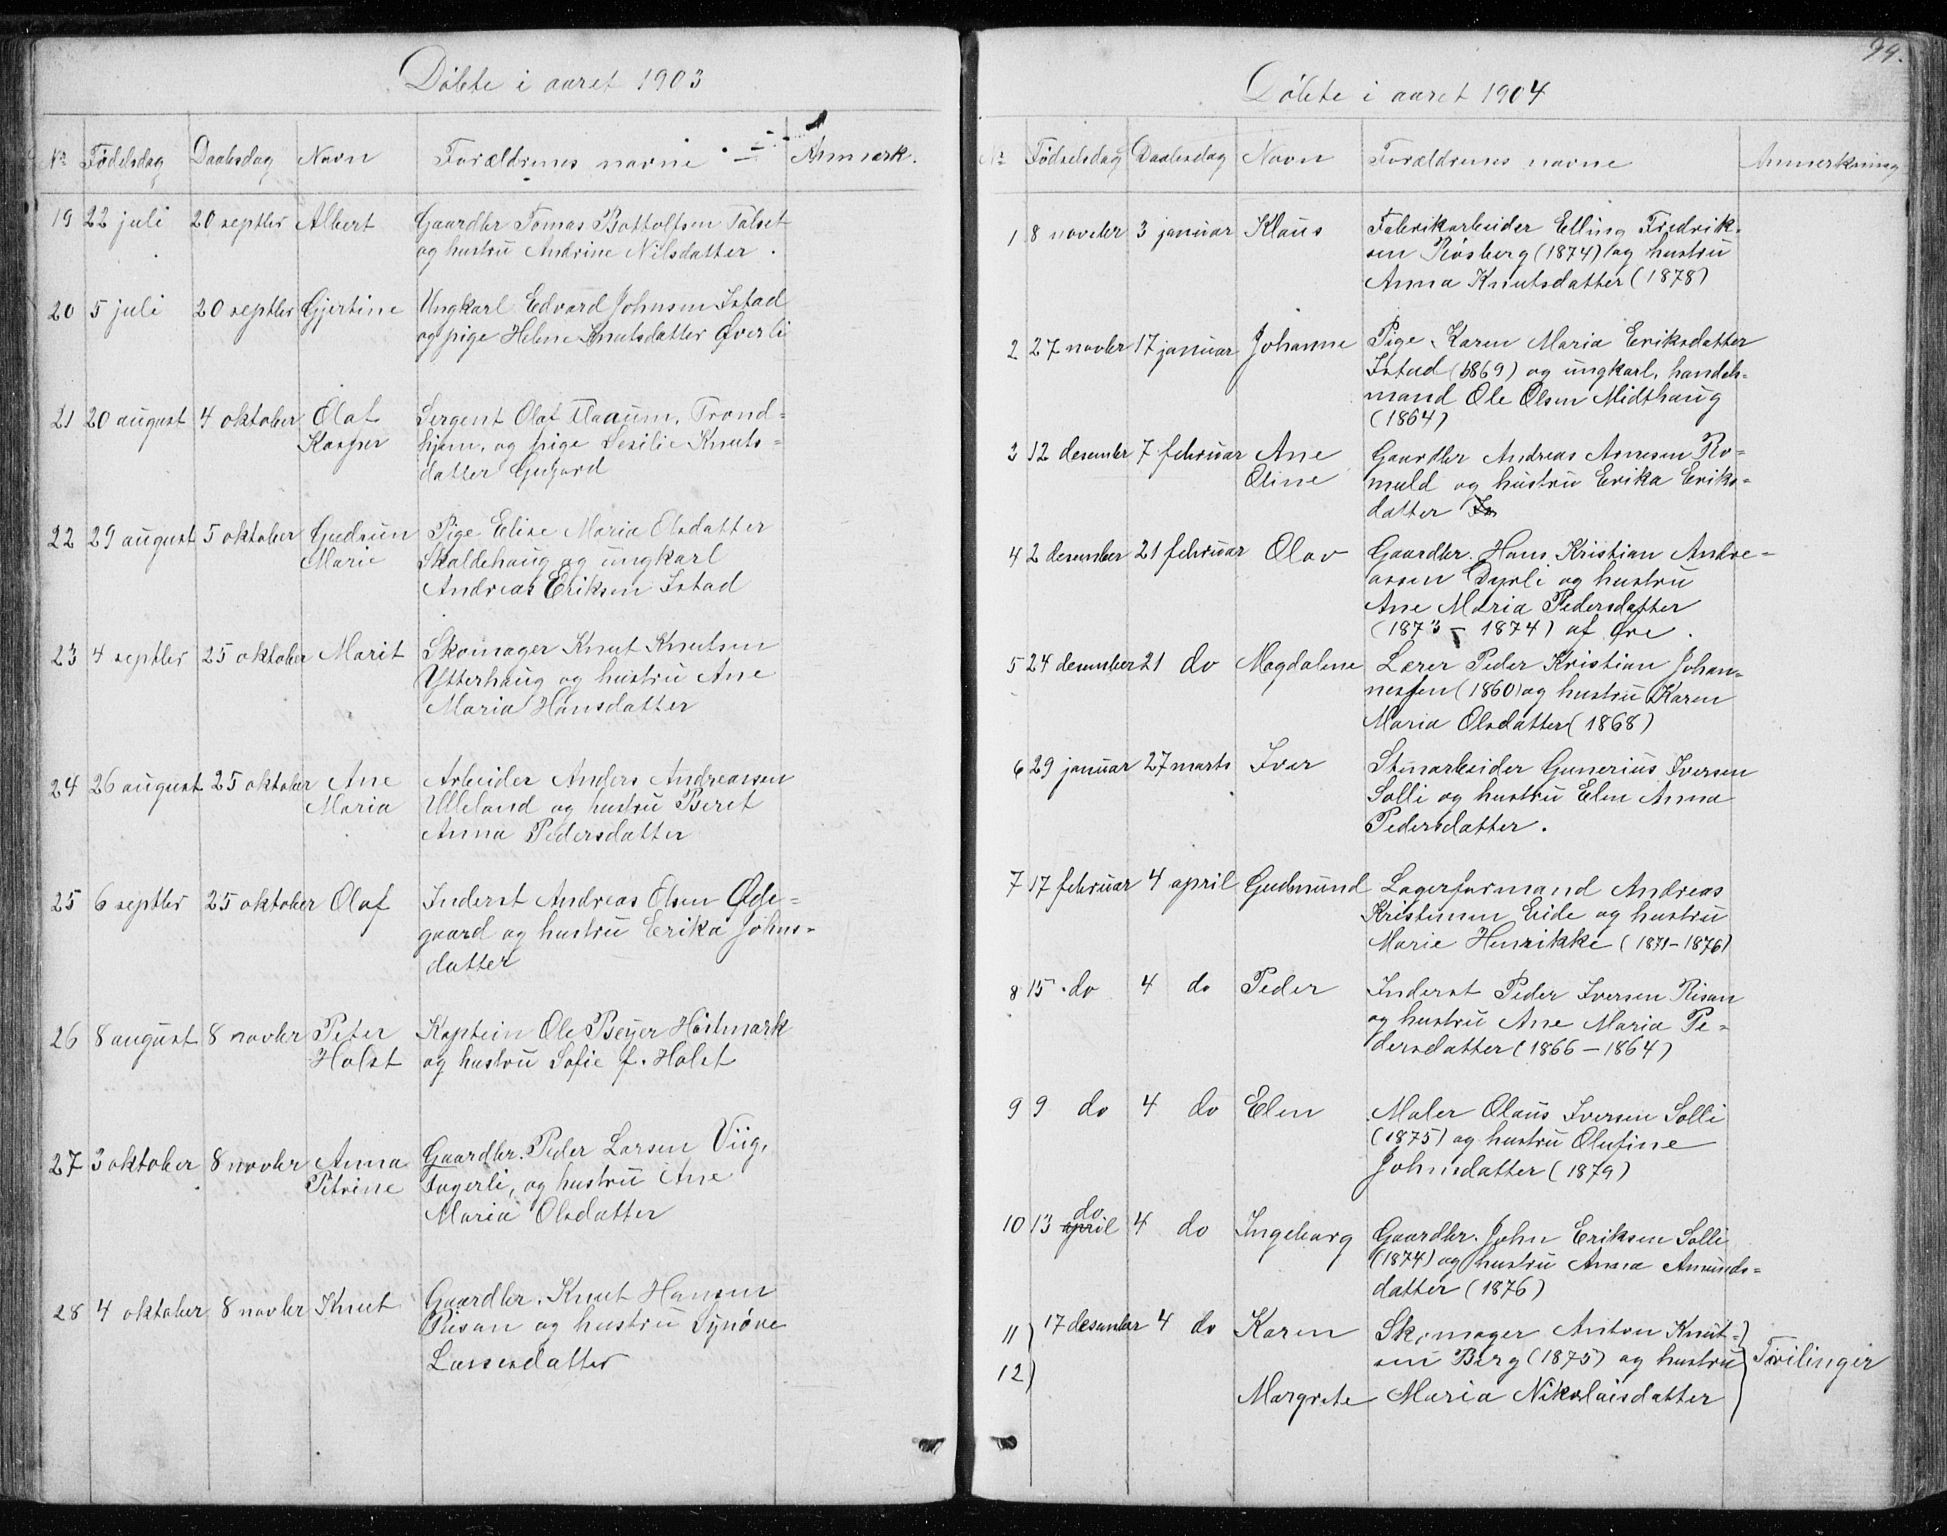 Døbte i aaret 1903
No Fødelsdag Daabsdag Navn Forældrenes navne Anmærk.
19 22 juli 20 septbr Albert Gaardbr Tomas Bottolfsen Talset
og hustru Andrine Nilsdatter.
20 5 juli 20 septbr Gjertine Ungkarl Edvard Johnsen Istad
og pige Helene Knutsdatter Øverli
21 20 august 4 oktober Olaf Sergent Olaf Trond=
Kasper hjem, og pige Sesilie Knuts=
datter
22 29 august 5 oktober Gudrun Pige Elise Maria Olsdatter
Marie Skaldehaug og ungkarl
Andreas Eriksen Istad
23 4 septbr 25 oktober Marit Skomager Knut Knutsen
Ytterhaug og hustru Ane
Maria Hansdatter
24 26 august 25 oktober Ane Arbeider Anders Andreassen
Maria Ulleland og hustru Beret
Anna Pedersdatter
25 6 septbr 25 oktober Olaf Inderst Andreas Olsen Øde=
gaard og hustru Erika Johns=
datter
26 8 august 8 novbr Peter Kaptein Ole Beyer Høstmark
Holst og hustru Sofie f. Holst
27 3 oktober 8 novbr Anna Gaardbr. Peder Larsen Viig,
Petrine Fagerli, og hustru Ane
Maria Olsdatter
28 4 oktober 8 novbr Knut Gaardbr. Knut Hansen
Risan og hustru Synøve
Lassesdatter
94.
Døbte i aaret 1904
No Fødselsdag Daabsdag Navn Forældrenes navne Anmerkning
1 8 novbr 3 januar Klaus Fabrikarbeider Elling Fredrik=
sen Røsberg (1874) og hustru
Anna Knutsdatter (1878)
2 27 novbr 17 januar Johanne Pige Karen Maria Eriksdatter
Istad (1869) og ungkarl, handels=
mand Ole Olsen Midthaug
(1864)
3 12 desember 7 februar Ane Gaardbr Andreas Arnesen Ro=
Oline muld og hustru Erika Eriks=
datter
4 2 desember 21 februar Olav Gaardbr. Hans Kristian Andre=
assen Dyrli og hustru
Ane Maria Pedersdatter
(1873 – 1874) af Øre.
5 24 desember 21 do Magdalene Lærer Peder Kristian Johan=
nessen (1860) og hustru Karen
Maria Olsdatter (1868)
6 29 januar 27 marts Ivar Stenarbeider Gunerius Iversen
Solli og hustru Elen Anna
Pedersdatter.
7 17 februar 4 april Gudmund Lagerformand Andreas
Kristensen Eide og hustru
Marie Henrikke (1871–1876)
8 15 do 4 do Peder Inderst Peder Iversen Risan
og hustru Ane Maria Pe=
dersdatter (1866–1864)
9 9 do 4 do Elen Maler Olaus Iversen Solli
(1875) og hustru Olufine
Johnsdatter (1879)
do
10 13 april 4 do Ingeborg Gaardbr. John Eriksen Solli
(1874) og hustru Anna Amunds=
datter (1876)
11) 17 desember 4 do Karen Skomager Anton Knut=
sen Berg (1875) og hustru Tvilinger
12)
Margrete Maria Nikolaisdatter